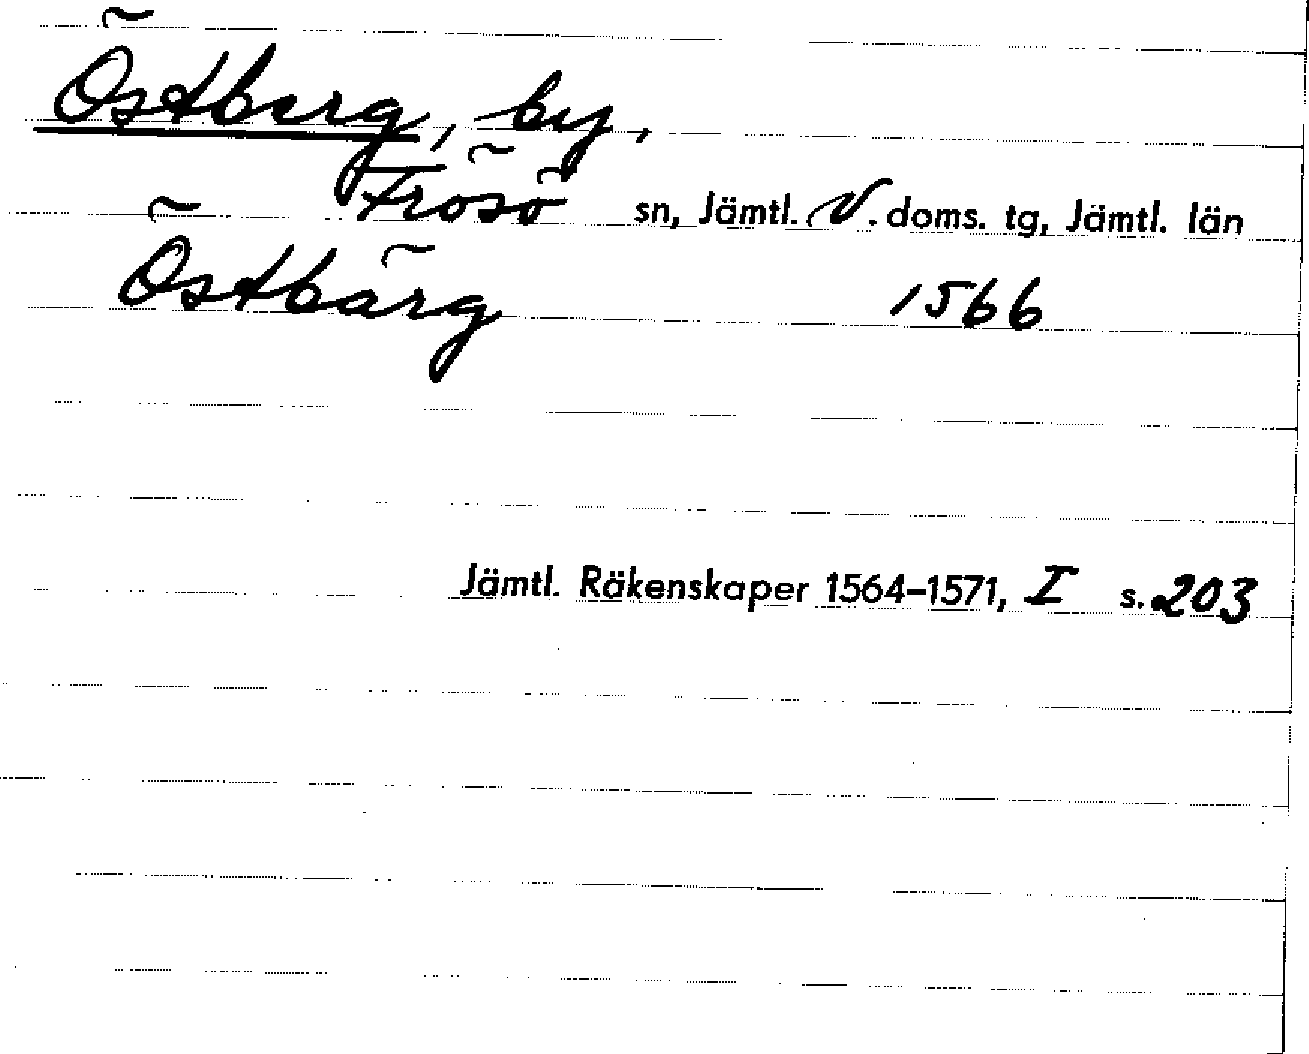 Östberg, by,
Frösö sn, Jämtl. V. doms. tg, Jämtl. län
Östbärg 1566
Jämtl. Räkenskaper 1564–1571, I s. 203